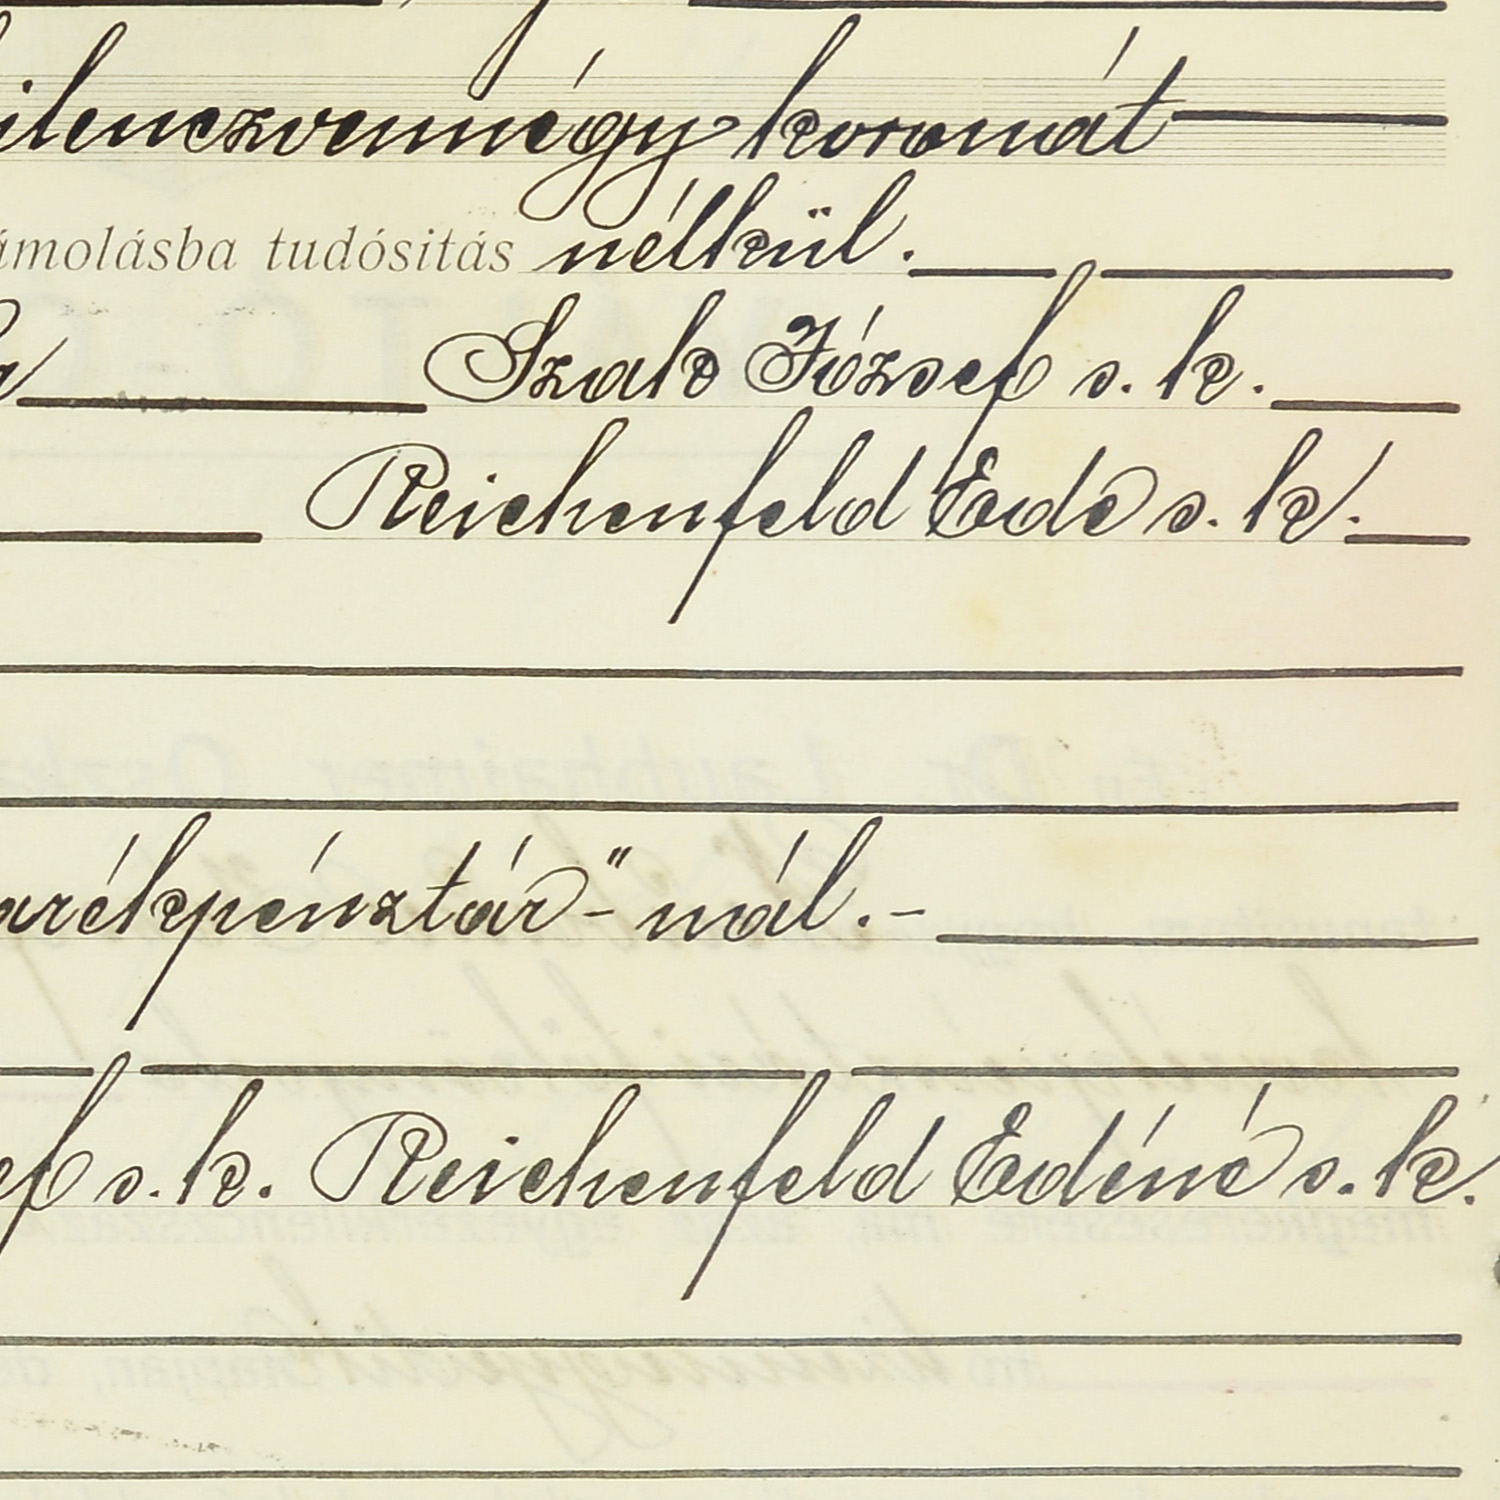 ilenczvennégy koronát
ámolásba tudósitás nélkül.
Szakó József s. k.
Reichenfeld Ede s. k.
arékpénztár-" nál.-
ef s. k. Reichenfeld Edéné s. k.